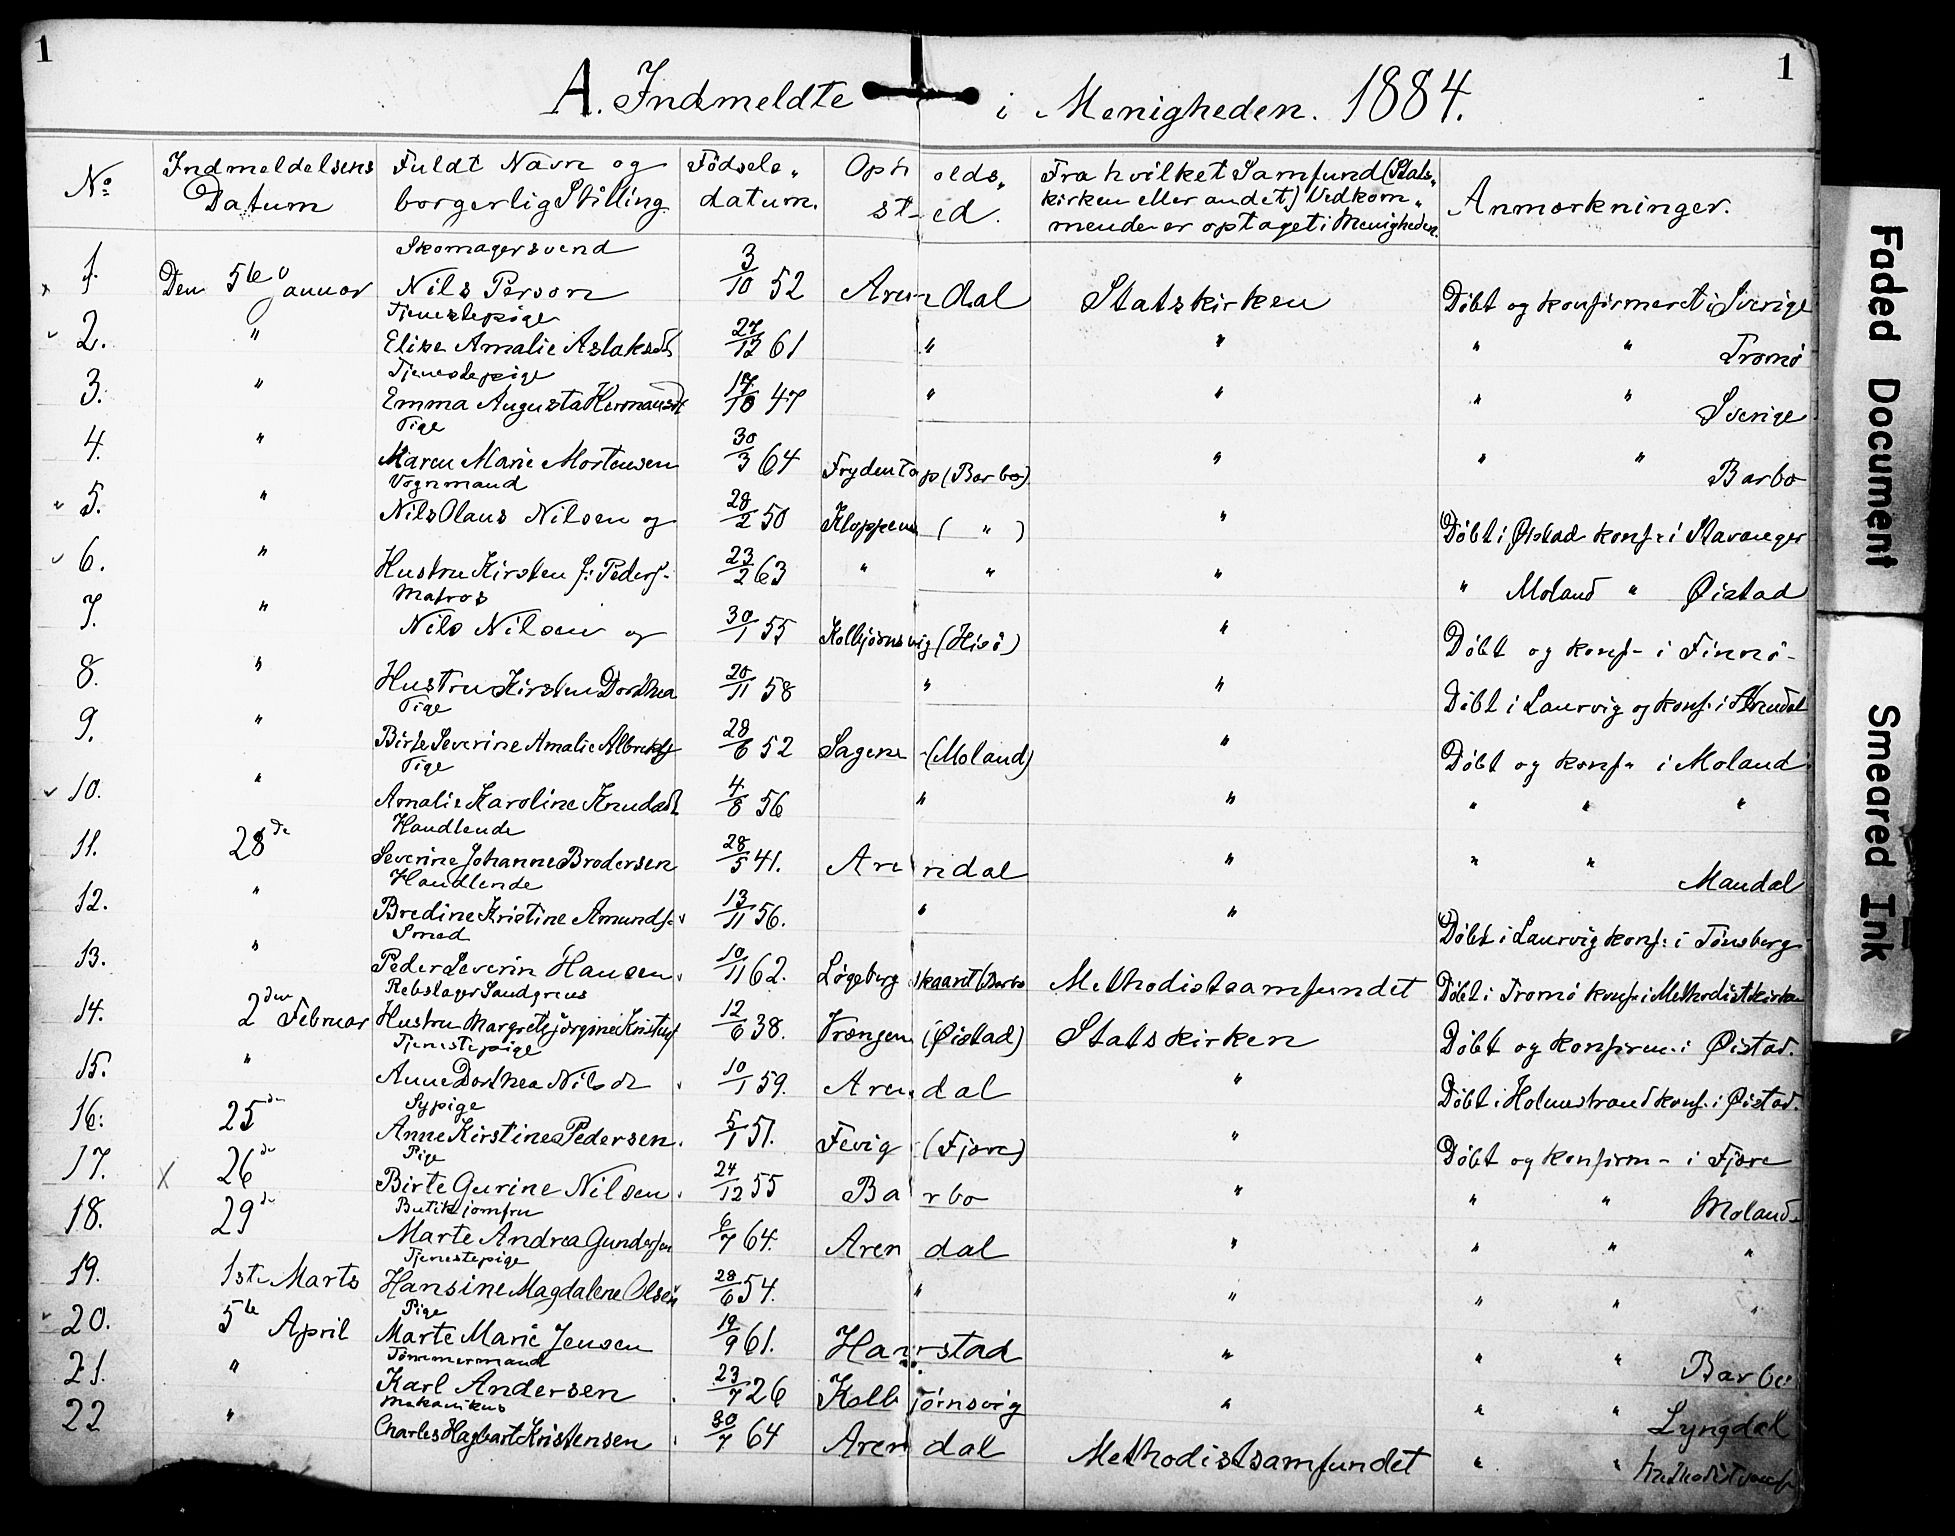 1
1
A. Indmeldte i Menigheden. 1884.
No Indmeldelsens Datum Fuldt Navn og borgerlig Stilling Fødsels„ datum. Opholds„ sted. Fra hvilket Samfund (Stats„ kirken eller andet) Vedkom„ mende er optaget i Menigheden. Anmærkninger.
Skomagersvend
1. Den 5te Januar Nils Person 3/10 52 Arendal Statskirken Døbt og konfirmeret i Sverige
Tjenestepige
2. " Elise Amalie Aslaksdt 27/12 61 " " " " Tromø
Tjenestepige
3. " Emma Augusta Hermansdt 17/10 47 " " " " Sverige
Pige
4. " Maren Marie Mortensen 30/3 64 Frydentop (Barbo) " " " Barbo
Vognmand
5. " Nils Olaus Nilsen og 28/2 50 Kloppene ( " ) " Døbt i Øistad konf: i Stavanger
6. " Hustru Kirsten f: Peders. 23/2 63 " " " " Moland " Øistad
Matros
7. " Nils Nilsen og 30/1 55 Kolbjørnsvig (Hisø) " Døbt og konf- i Finnø-
8. " Hustru Kirsten Dorthea 20/11 58 " " Døbt i Laurvig og konf: i Arendal
Pige
9. " Birte Severine Amalie Albrektsf 28/6 52 Sagene (Moland) " Døbt og konf- i Moland
Pige
10. " Amalie Karoline Knudsdt 4/8 56 " " " " "
Handlende
11. 28de Severine Johanne Brodersen 28/5 41. Arendal " " " Mandal
Handlende
12. " Bredine Kristine Amundsf. 13/11 56. " " Døbt i Laurvig konf: i Tønsberg
Smed
13. " Peder Severin Hansen. 10/11 62. Løgebergskaaret (Barbo Methodistsamfundet Døbt i Tromø konf: i Methodistkirken
Rebslager Sandgrens
14. 2den Februar Hustru Margrete Jørgine Kristensf 12/6 38. Vrængen (Øistad) Statskirken Døbt og konfirm. i Øistad.
Tjenestepige
15. " Anne Dorthea Nilsdt 10/1 59. Arendal " Døbt i Holmestrand konf. i Øistad.
Sypige
16: 25de Anne Kirstine Pedersen. 5/1 51. Fevig (Fjære) " Døbt og konfirm- i Fjære
Pige
17. X 26de Birte Gurine Nilsen. 24/12 55 Barbo " " " Moland
Butikjomfru
18. 29de Marte Andrea Gundersen 6/7 64. Arendal " " " "
Tjenestepige
19. 1ste Marts Hansine Magdalene Olsen 28/6 54. " " " " "
Pige
20. 5te April Marte Marie Jensen 19/9 61. Harrstad " " " Barbo
Tømmermand
21. " Karl Andersen 23/7 26 Kolbjørnsvig " " " Lyngdal
Mekanikus
22 " Charles Hagbart Kristensen 30/7 64 Arendal Methodistsamfundet " "
Faded Document
Smeared Ink